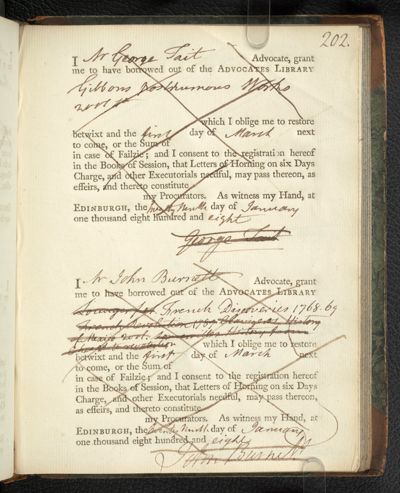 202.
I Mr George Tait Advocate, grant
me to have borrowed out of the ADVOCATES LIBRARY
Gibbons posthumous Works
2 vols 4to
which I oblige me to restore
betwixt and the first day of March next
to come, or the Sum of
in case of Failzie; and I consent to the registration hereof
in the Books of Session, that Letters of Horning on six Days
Charge, and other Executorials needful, may pass thereon, as
effeirs, and thereto constitute
my Procurators. As witness my Hand, at
EDINBURGH, the twenty ninth day of January
one thousand eight hundred and eight
George Tait
I Mr John Burnett Advocate, grant
me to have borrowed out of the ADVOCATES LIBRARY
French Discoveries 1768-69
History
which I oblige me to restore
betwixt and the first day of March next
to come, or the Sum of
in case of Failzie; and I consent to the registration hereof
in the Books of Session, that Letters of Horning on six Days
Charge, and other Executorials needful, may pass thereon,
as effeirs, and thereto constitute
my Procurators. As witness my Hand, at
EDINBURGH, the twenty ninth day of January
one thousand eight hundred and eight
John Burnett